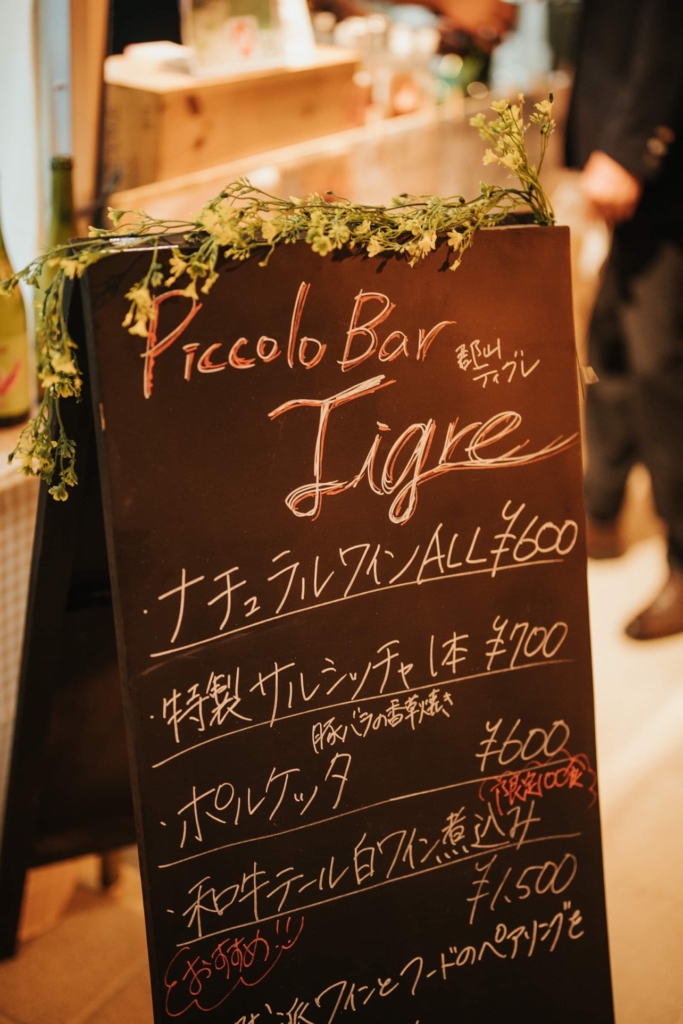 Piccolo Bar
郡山
ティグレ
Tigre
・ナチュラルワインALL ¥600
・特製サルシッチャ1本 ¥700
豚バラの香草焼き
・ポルケッタ ¥600
限定100食
・和牛テール白ワイン煮込み
¥1,500
おすすめ!!
派ワインとフードのペアリングを